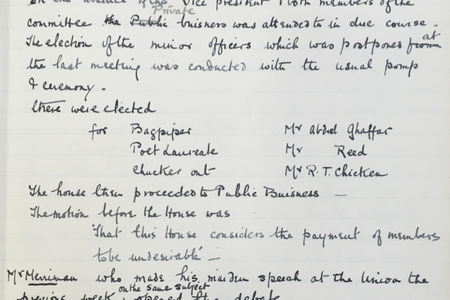 In the absence of the Vice President & both members of the
committee the Public Private buisness was attended to in due course.
The election of the minor officers which was postponed from at
the last meeting was conducted with the usual pomp
& ceremony.
There were elected
for Bagpiper Mr Abdul Ghaffar
Poet Laureate Mr Reed
Chucker out Mr R.T. Chicken
The house then proceeded to Public Buisness —
The motion before the House was
That this House considers the payment of members
to be undesirable —
Mr Merriman who made his maiden speech at the Union the
previous week on the same subject opened the debate